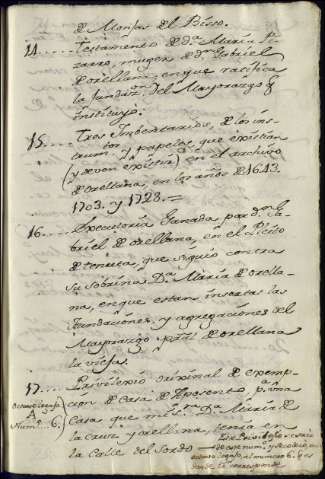 de Monjas del Visso.
14.... Testamento de dª Maria Pi-
zarro, muger de dn Gabriel
de Orellana, en que ratifica
la fundazn del Mayorazgo q
instituyó.
15.... Tres Imbentarios, de los ins-
trum.tos y papeles que existian
(y deven existir) en el archivo
de Orellana, en los años de 1643.
1703. y 1728.=
16.... Executoria Ganada por dn Ga-
briel de Orellana, en el Pleito
de tenuta, que siguio contra
su sobrina Dª Maria de Orella-
na, en que estan insertas las
fundaciones, y agregaciones del
Mayorazgo de Orellana
la vieja.
17.... Privilexio original de exemp-
cion de Casa de Aposento pª una
Casa que Dª Maria de
la Cruz y Orellana, tenia en
la Calle del Sordo
Num.º 6.